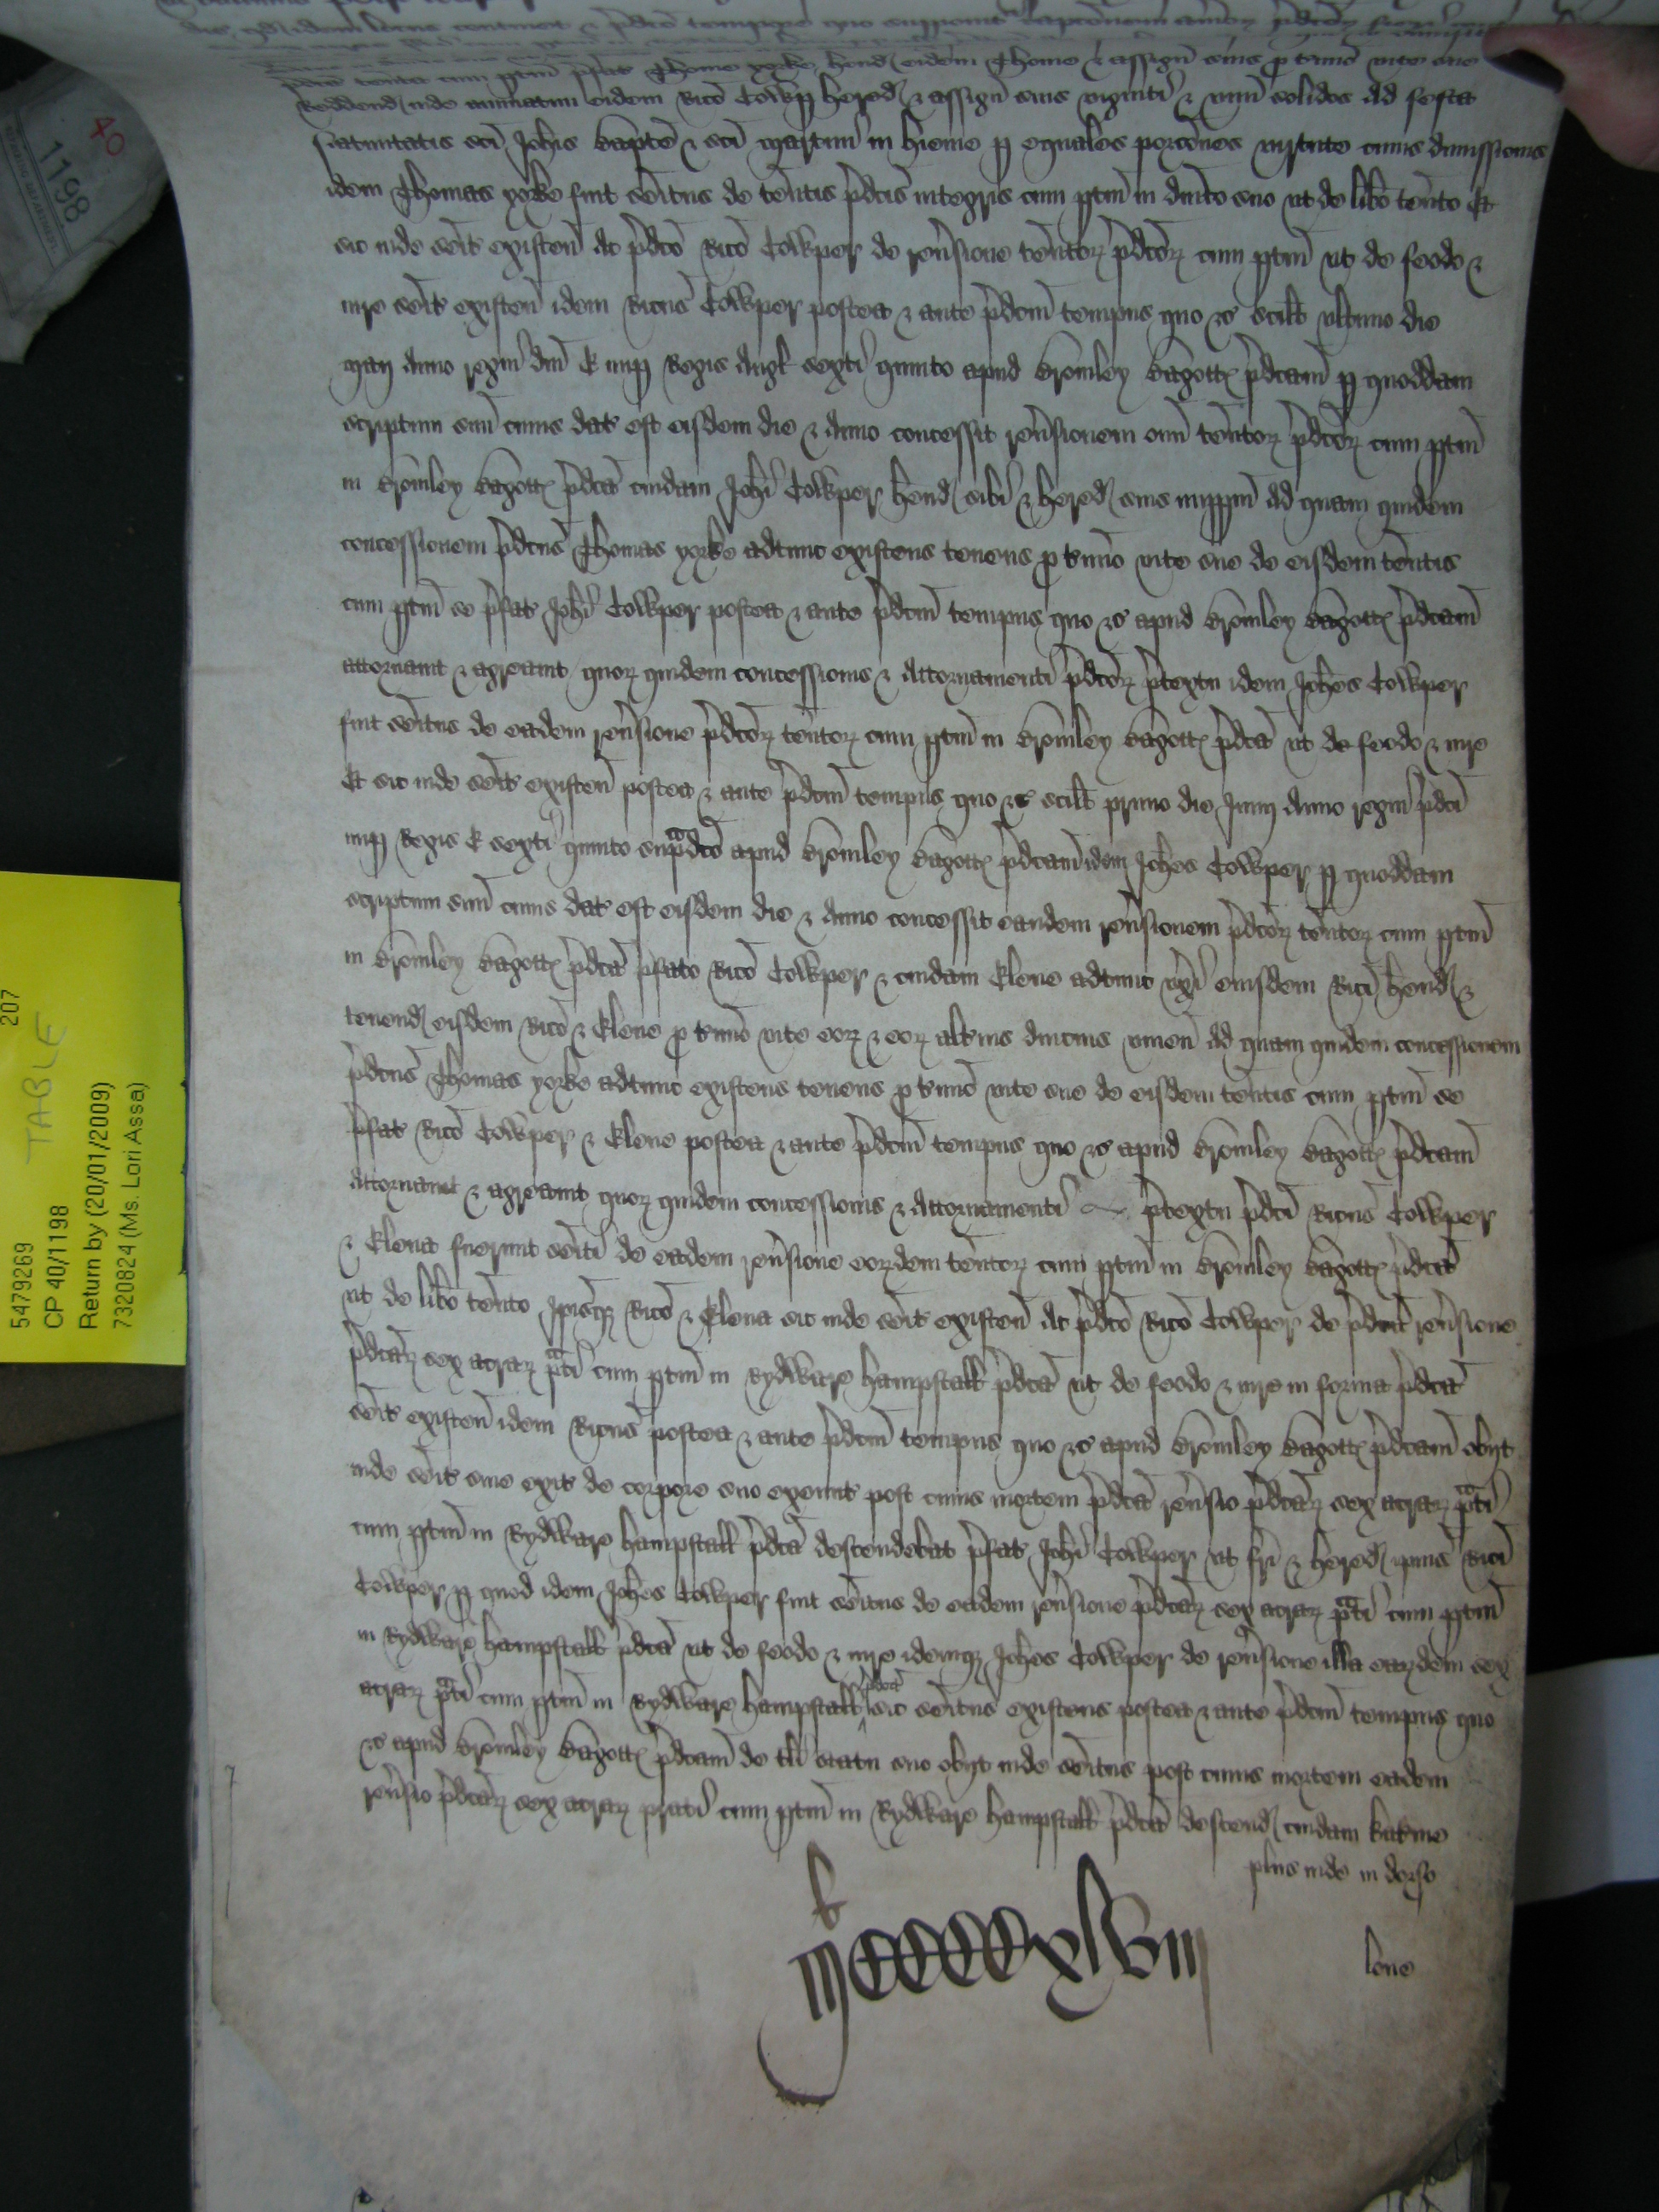 die qd idem locus continet & p̄dc̄o tempore quo supponit capc̄onem
p̄dc̄a tenta cum ptin̄ p̄fat Thome yorke hend eidem Thome & assign̄ suis p̱ t̄mino vite sue
Reddend inde annuatim eidem Ric̄o Cowp̱ hered & assign̄ suis viginti & unū solidos ad festa
Nativitatis sc̄i Joh̄is Bapte & sc̄i Martini in hieme p̱ equales porc̄ones virtute cuius dimissionis
idem Thomas yorke fuit sēitus de ten̄tis p̄dc̄is integris cum ptin̄ in dn̄ico suo ut de lib̄o ten̄to Et
sic inde sēit existen̄ Ac p̄dc̄o Ric̄o Cowper de rev̄sione ten̄toꝝ p̄dc̄oꝝ cum ptin̄ ut de feodo &
iure sēit existen̄ idem Ric̄us Cowper postea & ante p̄dc̄m tempus quo &c̄ scilt ultimo die
Maij Anno regni dn̄i E nup̱ Regis Angl sexti quinto apud Bromley Bagott p̄dc̄am p̱ quoddam
scriptum suū cuius dat est eisdem die & Anno concessit rev̄sionem om̄i ten̄toꝝ p̄dc̄oꝝ cum ptin̄
in Bromley Bagott p̄dc̄a cuidam Joh̄i Cowper hend sibi & hered suis imp̱p̱m Ad quam quidem
concessionem p̄dc̄us Thomas yorke adtunc existens tenens p̱ t̄mino vite sue de eisdem ten̄tis
cum ptin̄ se p̄fat Joh̄i Cowper postea & ante p̄dc̄m tempus quo &c̄ apud Bromley Bagott p̄dc̄am
attornavit & agreavit quoꝝ quidem concessionis & Attornamenti p̄dc̄oꝝ p̄textu idem Joh̄es Cowper
fuit sēitus de eadem rev̄sione p̄dc̄oꝝ ten̄toꝝ cum ptin̄ in Bromley Bagott p̄dc̄a ut de feodo & iure
Et sic inde sēit existen̄ postea & ante p̄dc̄m tempus quo &c̄ scilt primo die Junij Anno regni p̄dc̄i
nup̱ Regis E sexti quinto sup̄adc̄o apud Bromley Bagott p̄dc̄am idem Joh̄es Cowper p̱ quoddam
scriptum suū cuius dat est eisdem die & Anno concessit eandem rev̄sionem p̄dc̄oꝝ ten̄toꝝ cum ptin̄
in Bromley Bagott p̄dc̄a p̄fato Ric̄o Cowper & cuidam Elene adtunc ux̄i eiusdem Ric̄i hend &
tenend eisdem Ric̄o & Elene p̱ t̄mino vite eoꝝ & eoꝝ alt̄ius diucius viven̄ Ad quam quidem concessionem
p̄dc̄us Thomas yorke adtunc existens tenens p̱ t̄mino vite sue de eisdem ten̄tis cum ptin̄ se
p̄fat Ric̄o Cowper & Elene postea & ante p̄dc̄m tempus quo &c̄ apud Bromley Bagott p̄dc̄am
Attornavit & agreavit quoꝝ quidem concessionis & Attornamenti p̄textu p̄dc̄i Ric̄us Cowper
& Elena fuerunt sēiti de eadem rev̄sione eoꝝdem ten̄toꝝ cum ptin̄ in Bromley Bagott p̄dc̄a
ut de lib̄o ten̄to Ip̄isqꝫ Ric̄o & Elena sic inde sēit existen̄ Ac p̄dc̄o Ric̄o Cowper de p̄dc̄a rev̄sione
p̄dc̄aꝝ sex acraꝝ p̄ati cum ptin̄ in Rydware hampstall p̄dc̄a ut de feodo & iure in forma p̄dc̄a
sēit existen̄ idem Ric̄us postea & ante p̄dc̄m tempus quo &c̄ apud Bromley Bagott p̄dc̄am obijt
inde sēit sine exit de corpore suo exeunt post cuius mortem p̄dc̄a rev̄sio p̄dc̄aꝝ sex acraꝝ p̄ati
cum ptin̄ in Rydware hampstall p̄dc̄a descendebat p̄fat Joh̄i Cowper ut fr̄i & hered ip̄ius Ric̄i
Cowper p̱ quod idem Joh̄es Cowper fuit sēitus de eadem rev̄sione p̄dc̄aꝝ sex acraꝝ p̄ati cum ptin̄
in Rydware hampstall p̄dc̄a ut de feodo & iure idemqꝫ Joh̄es Cowper de rev̄sione illa eaꝝdem sex
acraꝝ p̄ati cum ptin̄ in Rydware hampstall p̄dc̄a sic sēitus existens postea & ante p̄dc̄m tempus quo
&c̄ apud Bromley Bagott p̄dc̄am de tli statu suo obijt inde sēitus post cuius mortem eadem
rev̄sio p̄dc̄aꝝ sex acraꝝ prati cum ptin̄ in Rydware hampstall p̄dc̄a descend cuidam Kat̄ine
plus inde in dorso
lone
40
1198
5479269 207
TABLE
CP 40/1198
Return by (20/01/2009)
7320824 (Ms. Lori Assa)